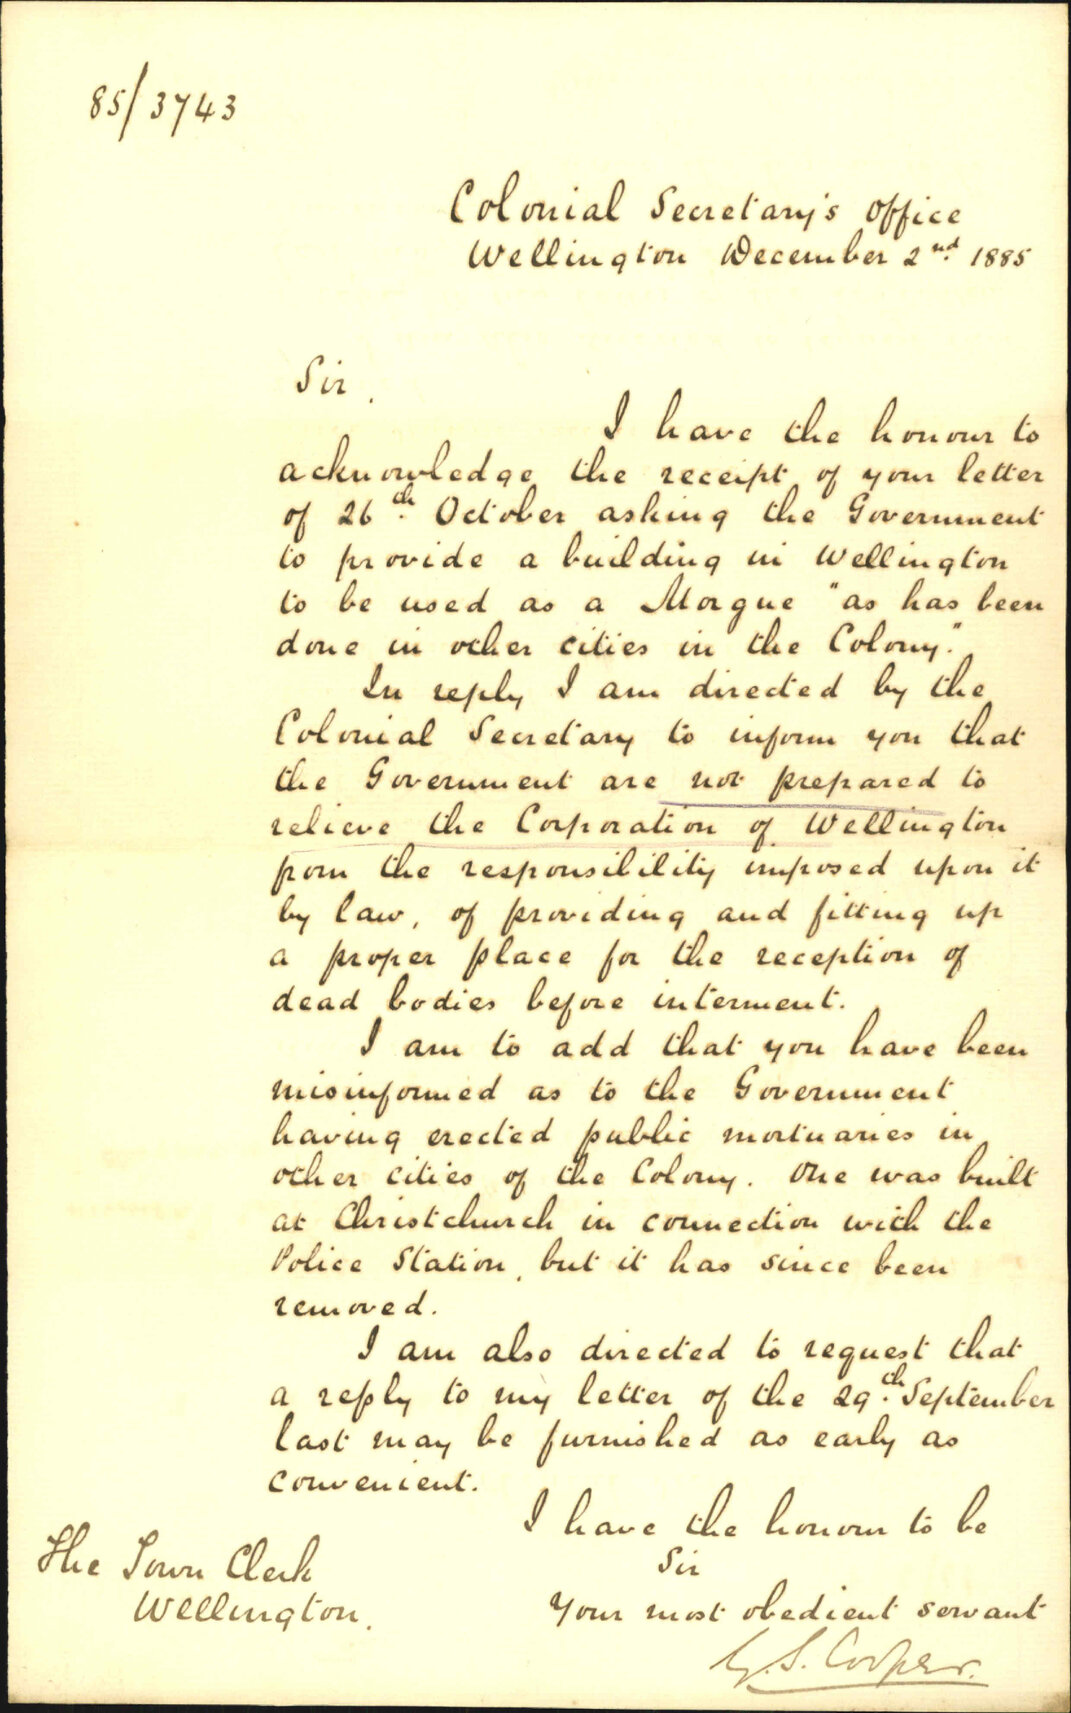 85/3743
Colonial Secretary's Office
Wellington December 2nd. 1885
Sir,
I have the honour to
acknowledge the receipt of your letter
of 26th. October asking the Government
to provide a building in Wellington
to be used as a Morgue "as has been
done in other cities in the Colony."
In reply I am directed by the
Colonial Secretary to inform you that
the Government are not prepared to
relieve the Corporation of Wellington
from the responsibility imposed upon it
by law, of providing and fitting up
a proper place for the reception of
dead bodies before interment.
I am to add that you have been
misinformed as to the Government
having erected public mortuaries in
other cities of the Colony. One was built
at Christchurch in connection with the
Police Station, but it has since been
removed.
I am also directed to request that
a reply to my letter of the 29th. September
last may be furnished as early as
convenient.
I have the honour to be
Sir
Your most obedient servant
G. S. Cooper.
The Town Clerk
Wellington.